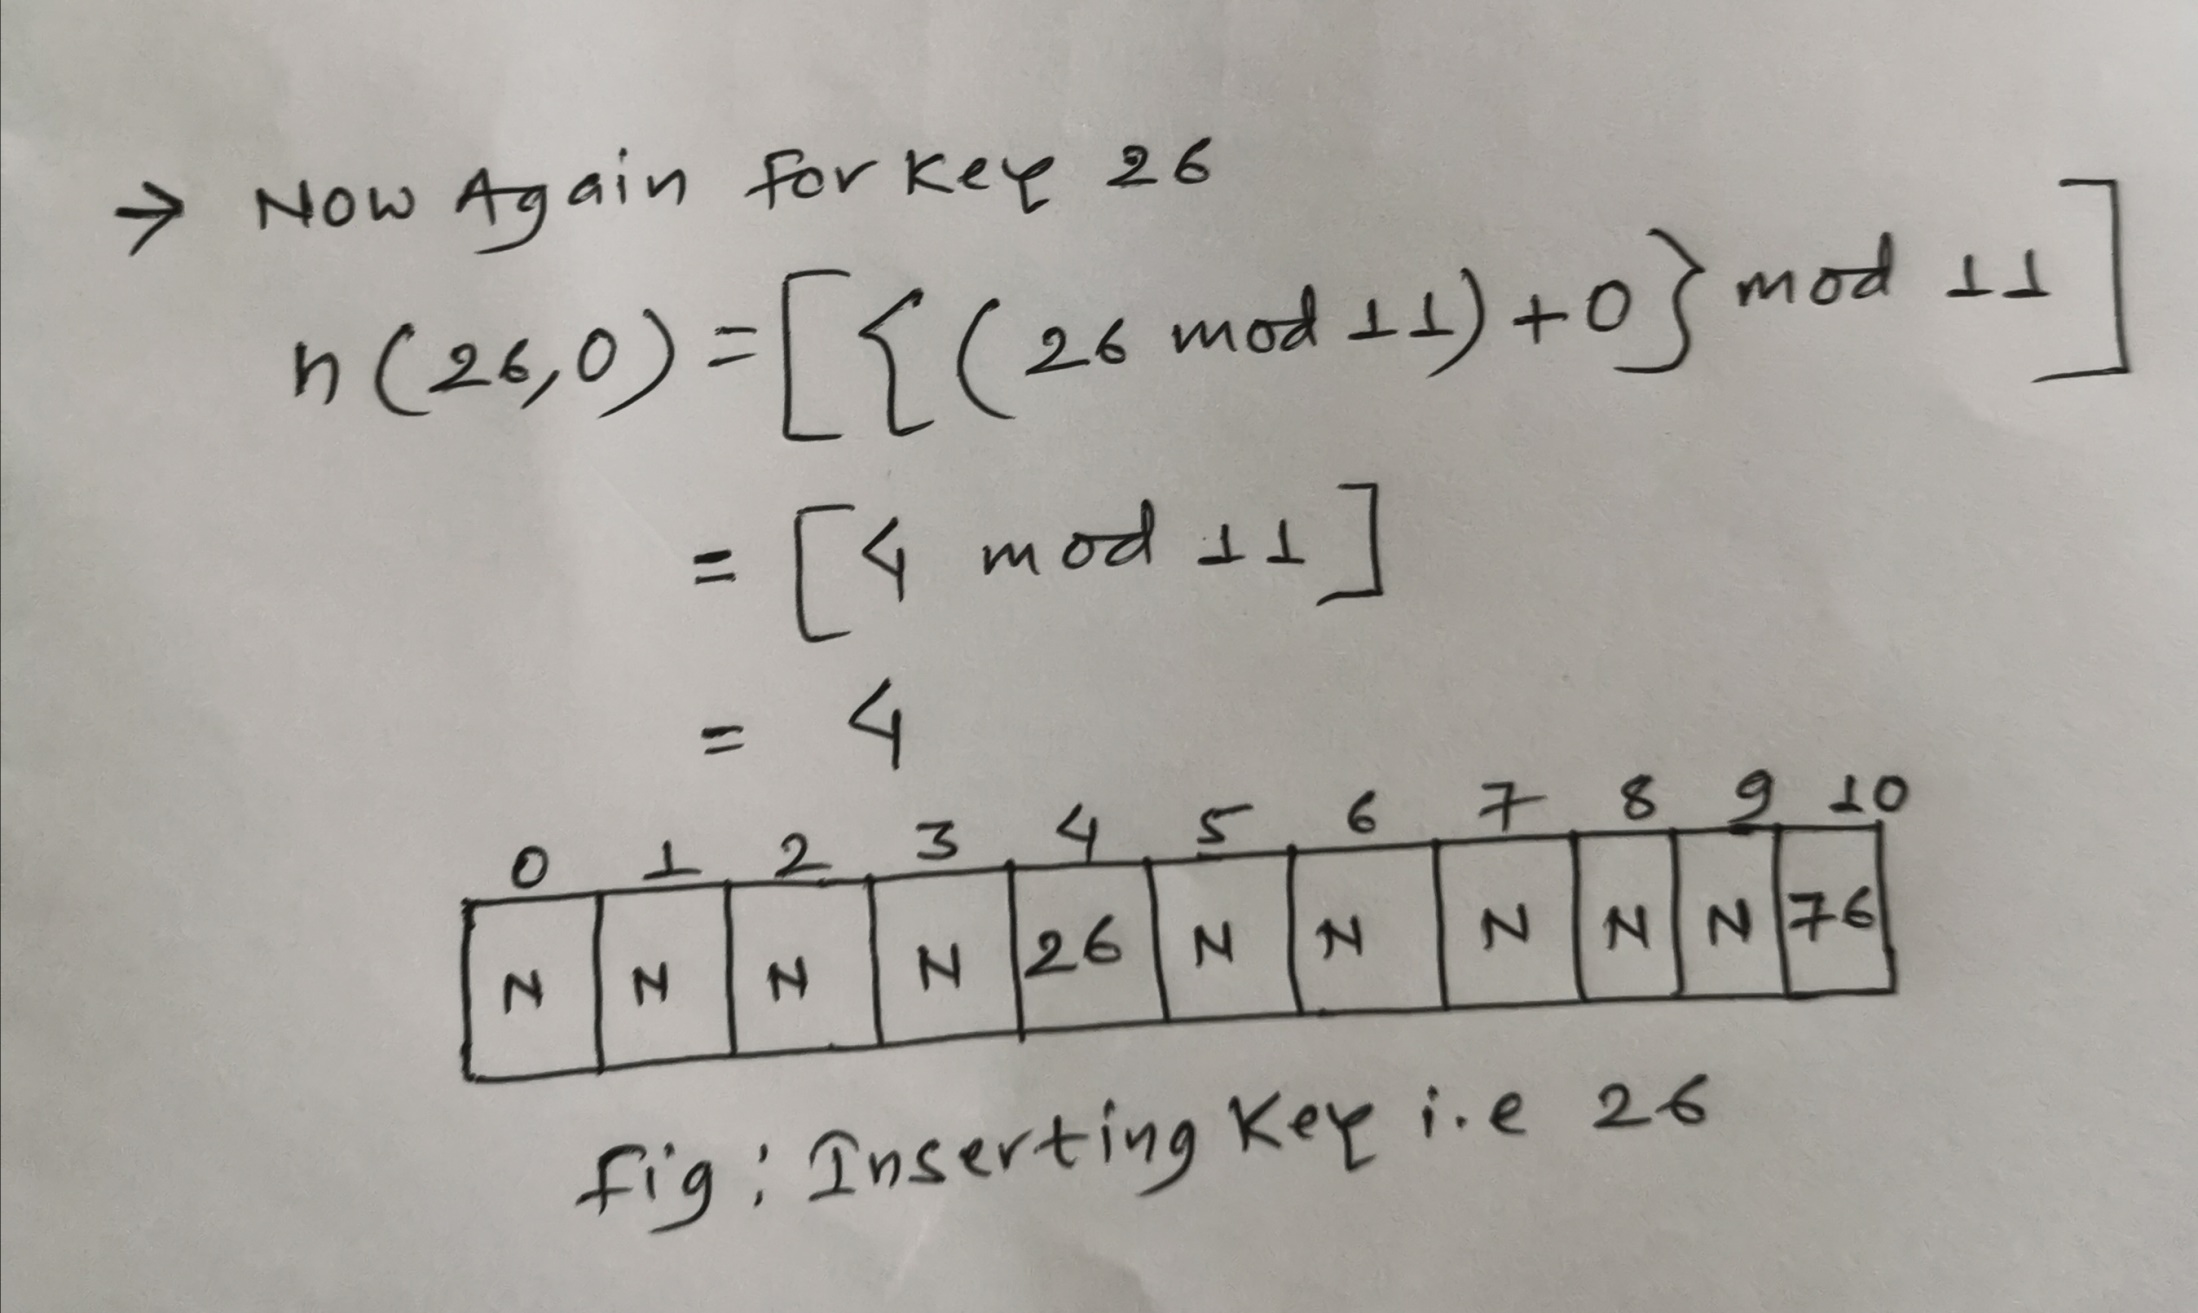 → Now Again for Key 26
h(26,0) = [{(26 mod 11) + 0} mod 11]
= [4 mod 11]
= 4
0 1 2 3 4 5 6 7 8 9 10
N N N N 26 N N N N N 76
fig: Inserting Key i.e 26